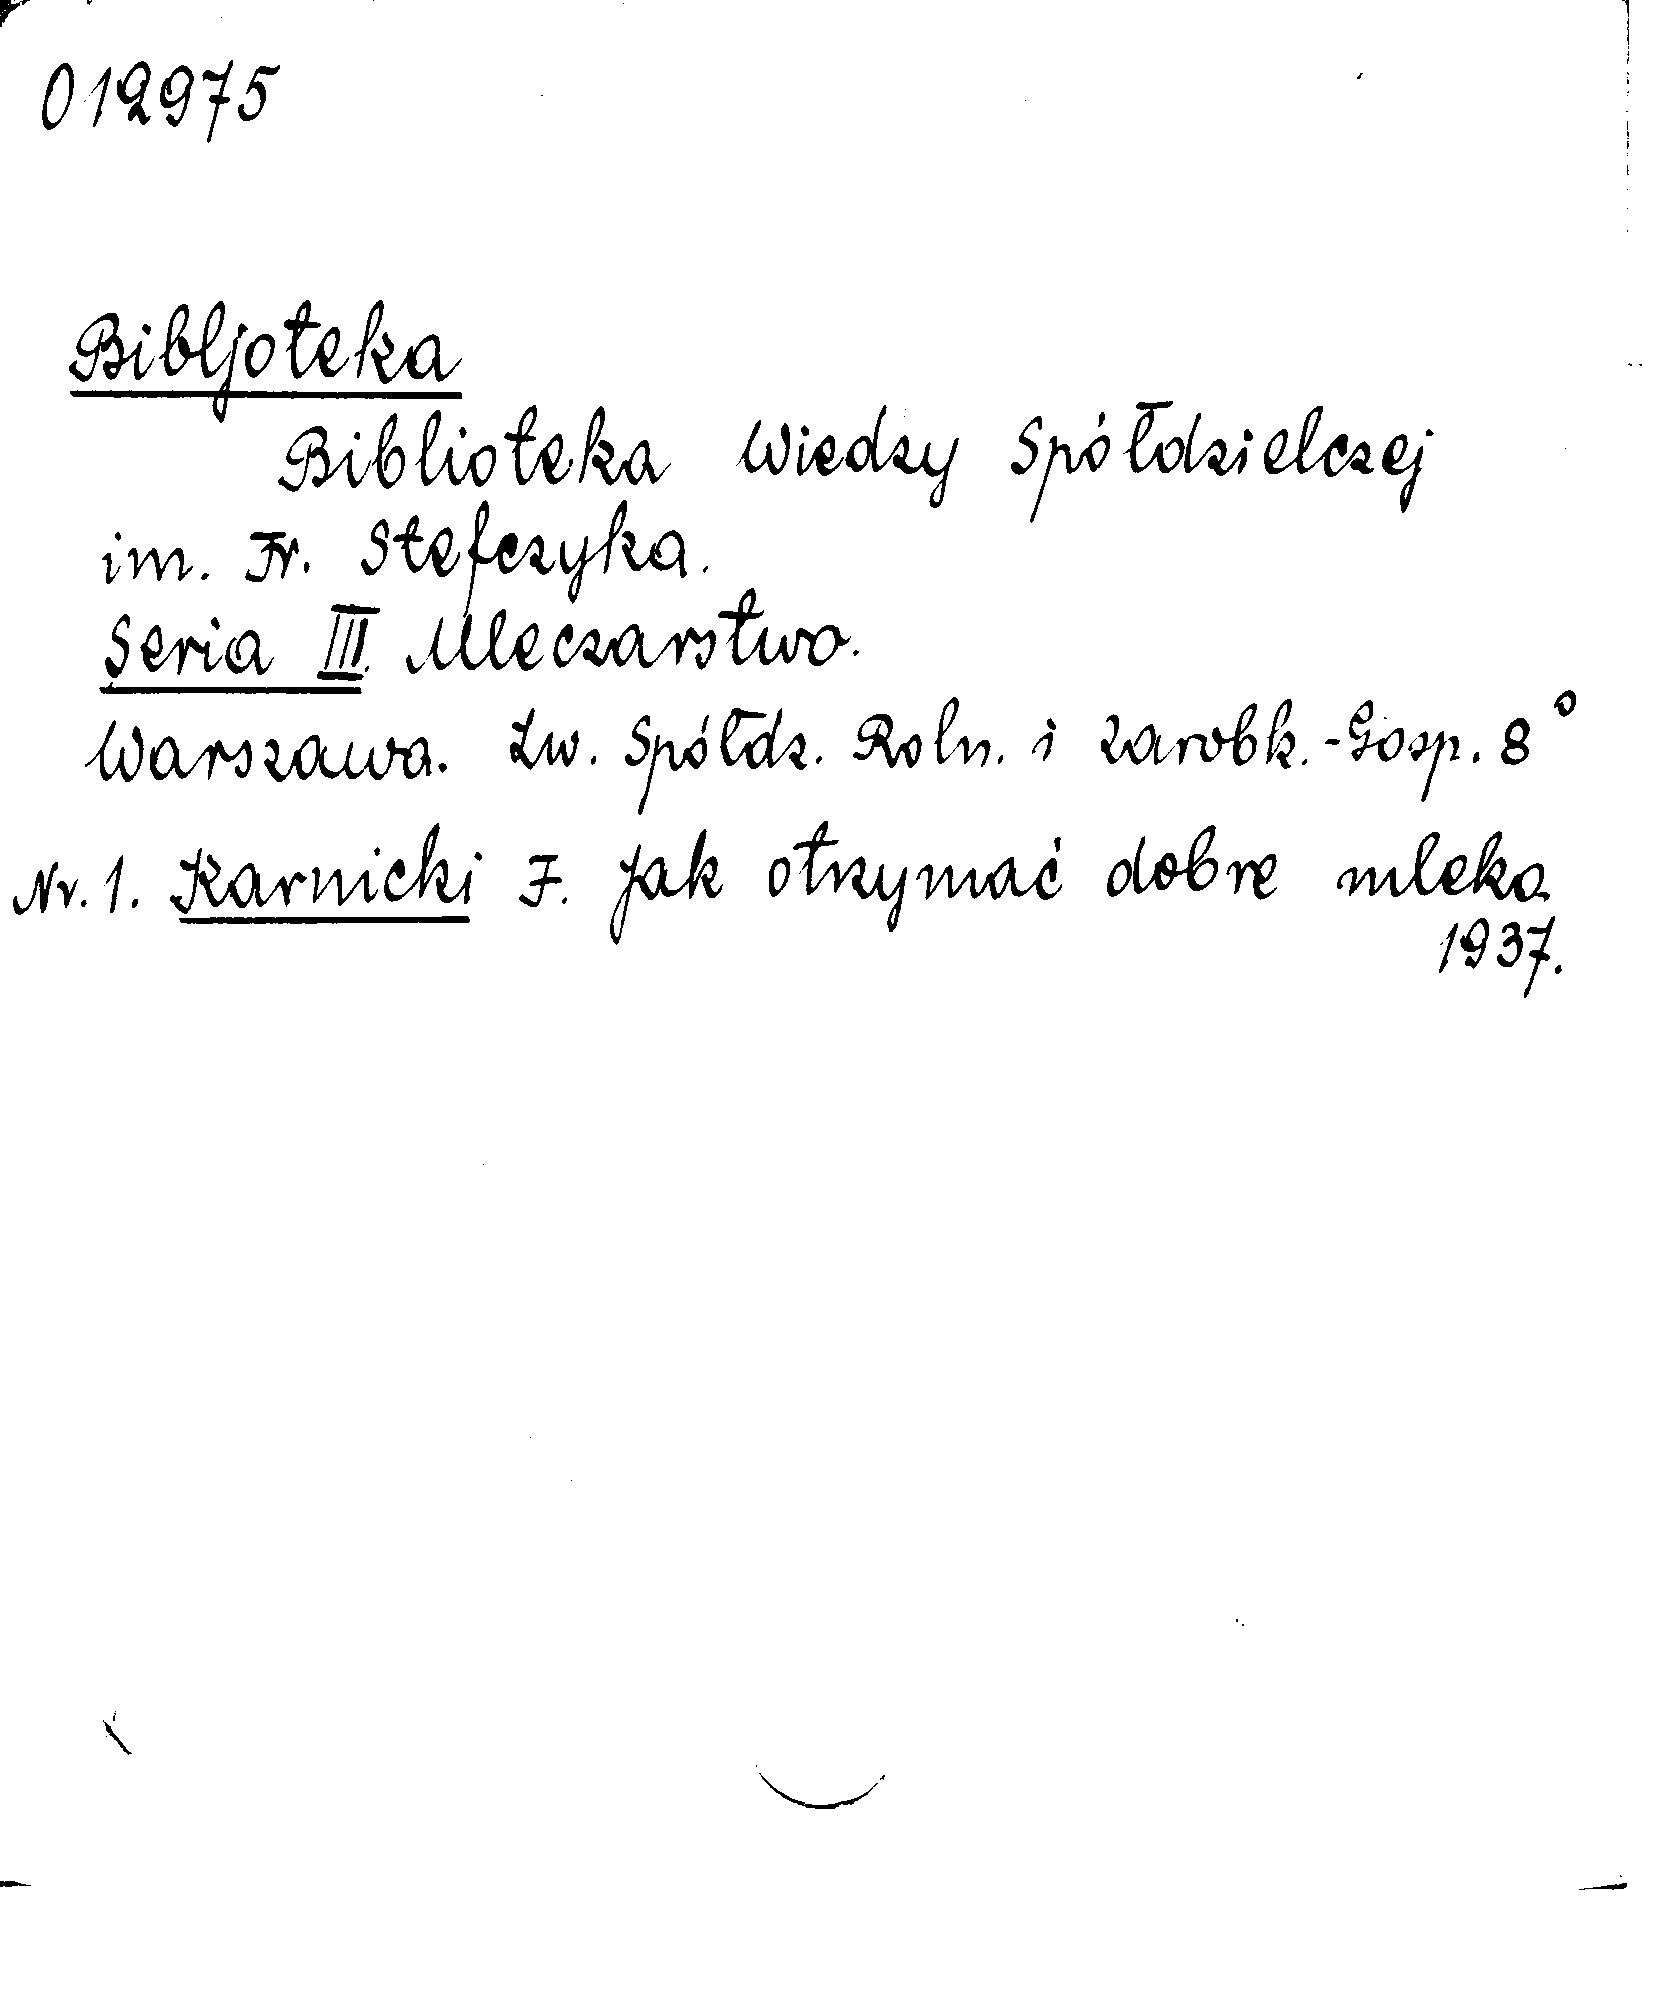 012975
Bibljoteka
Biblioteka Wiedzy Spółdzielczej
im. Fr. Stefczyka.
Seria III. Mleczarstwo.
Warszawa. Zw. Spółdz. Roln. i Zarobk.-Gosp. 8°
Nr. 1. Karnicki F. Jak otrzymać dobre mleko
1937.